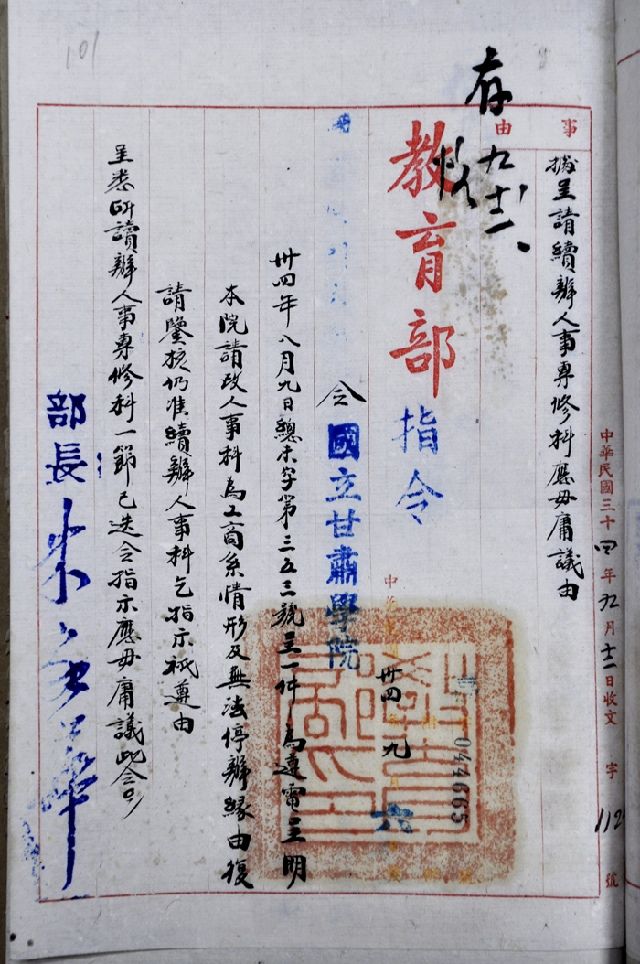 中華民國三十四年九月十二日收文 字 112 號
事由
據呈請續辦人事專修科應毋庸議由
存
九、十二、
教育部
指令
令國立甘肅學院
中華民國卅四年九月六日
044665
卅四年八月九日總未字第三五三號呈一件 為遵電呈明
本院請改人事科為工商系情形及無法停辦緣由復
請鑒核仍准續辦人事科乞指示祇遵由
呈悉所請續辦人事專修科一節已迭令指示應毋庸議此令
部長朱家驊
101